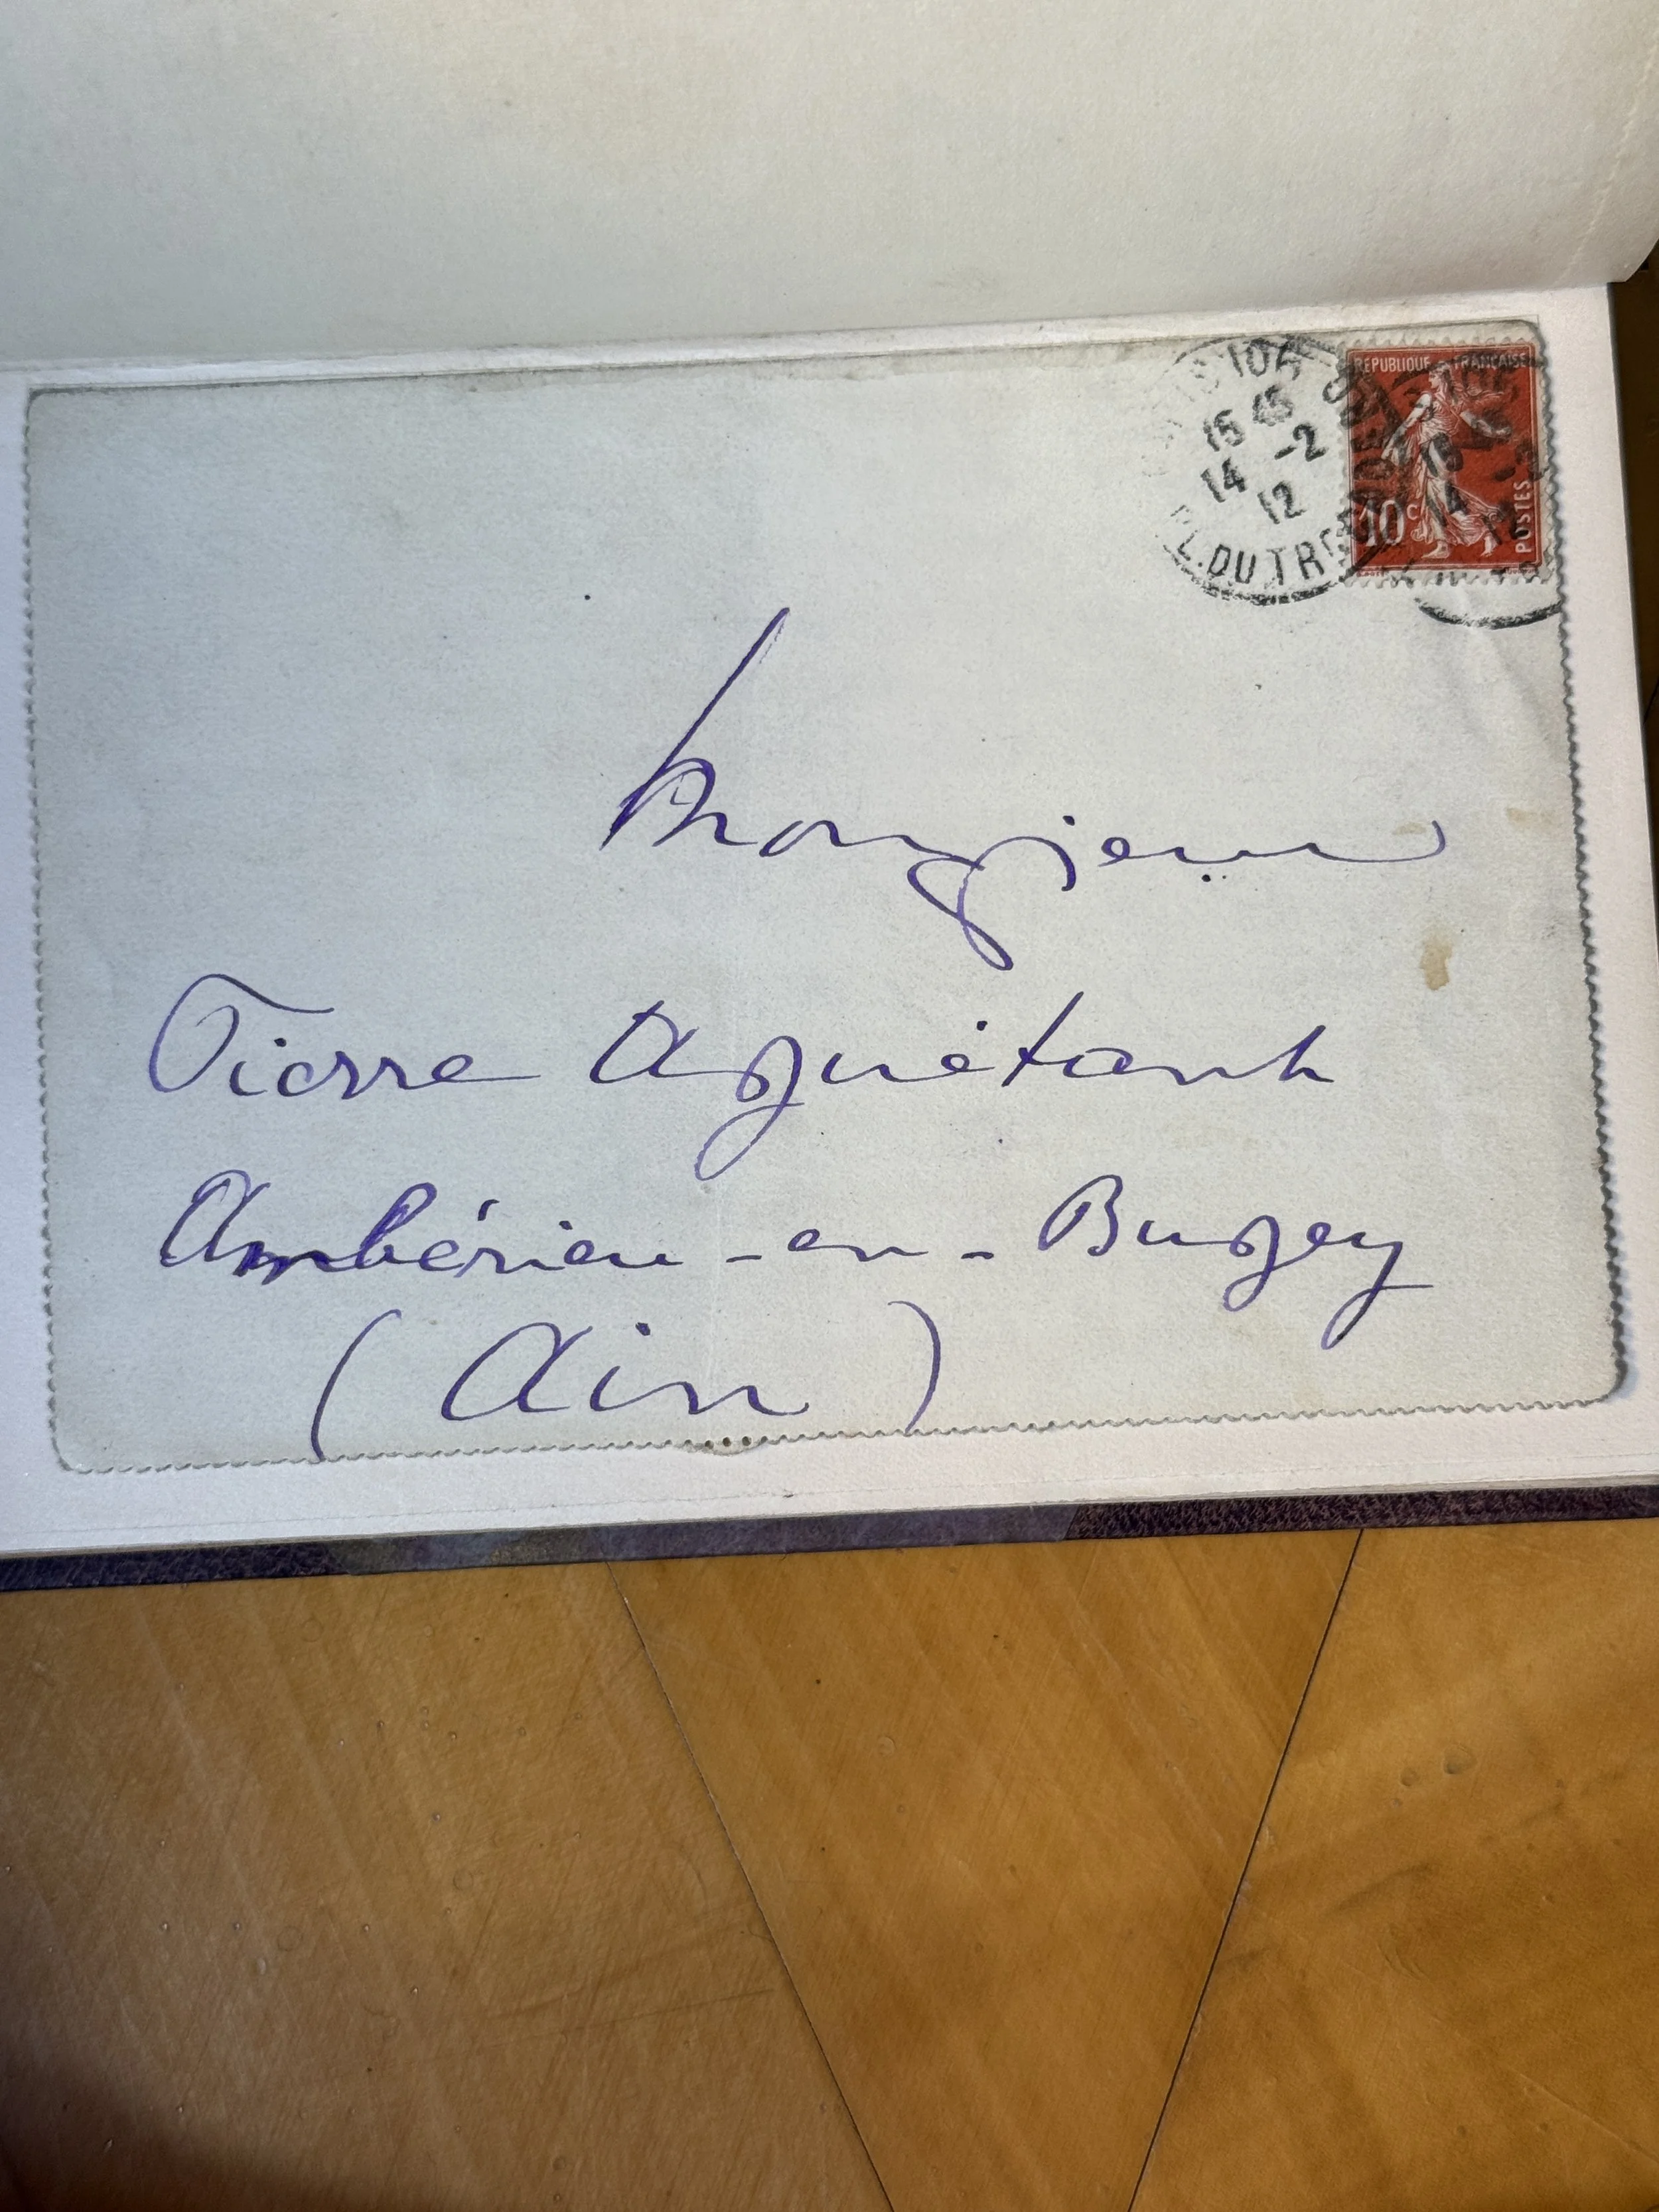 PARIS 106
15 45
14 -2
12
PL. DU TROCADERO
REPUBLIQUE FRANCAISE
10c
POSTES
Monsieur
Pierre Aguétant
Ambérieu-en-Bugey
(Ain)